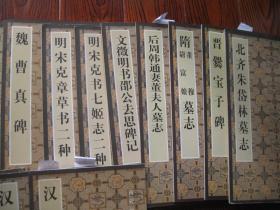 魏曹真碑
明宋克章草书二种
明宋克书七姬志二种
文徵明书邵公去思碑记
后周韩通妻董夫人墓志
隋尉富娘董穆墓志
晋爨宝子碑
北齐朱岱林墓志
汉
汉